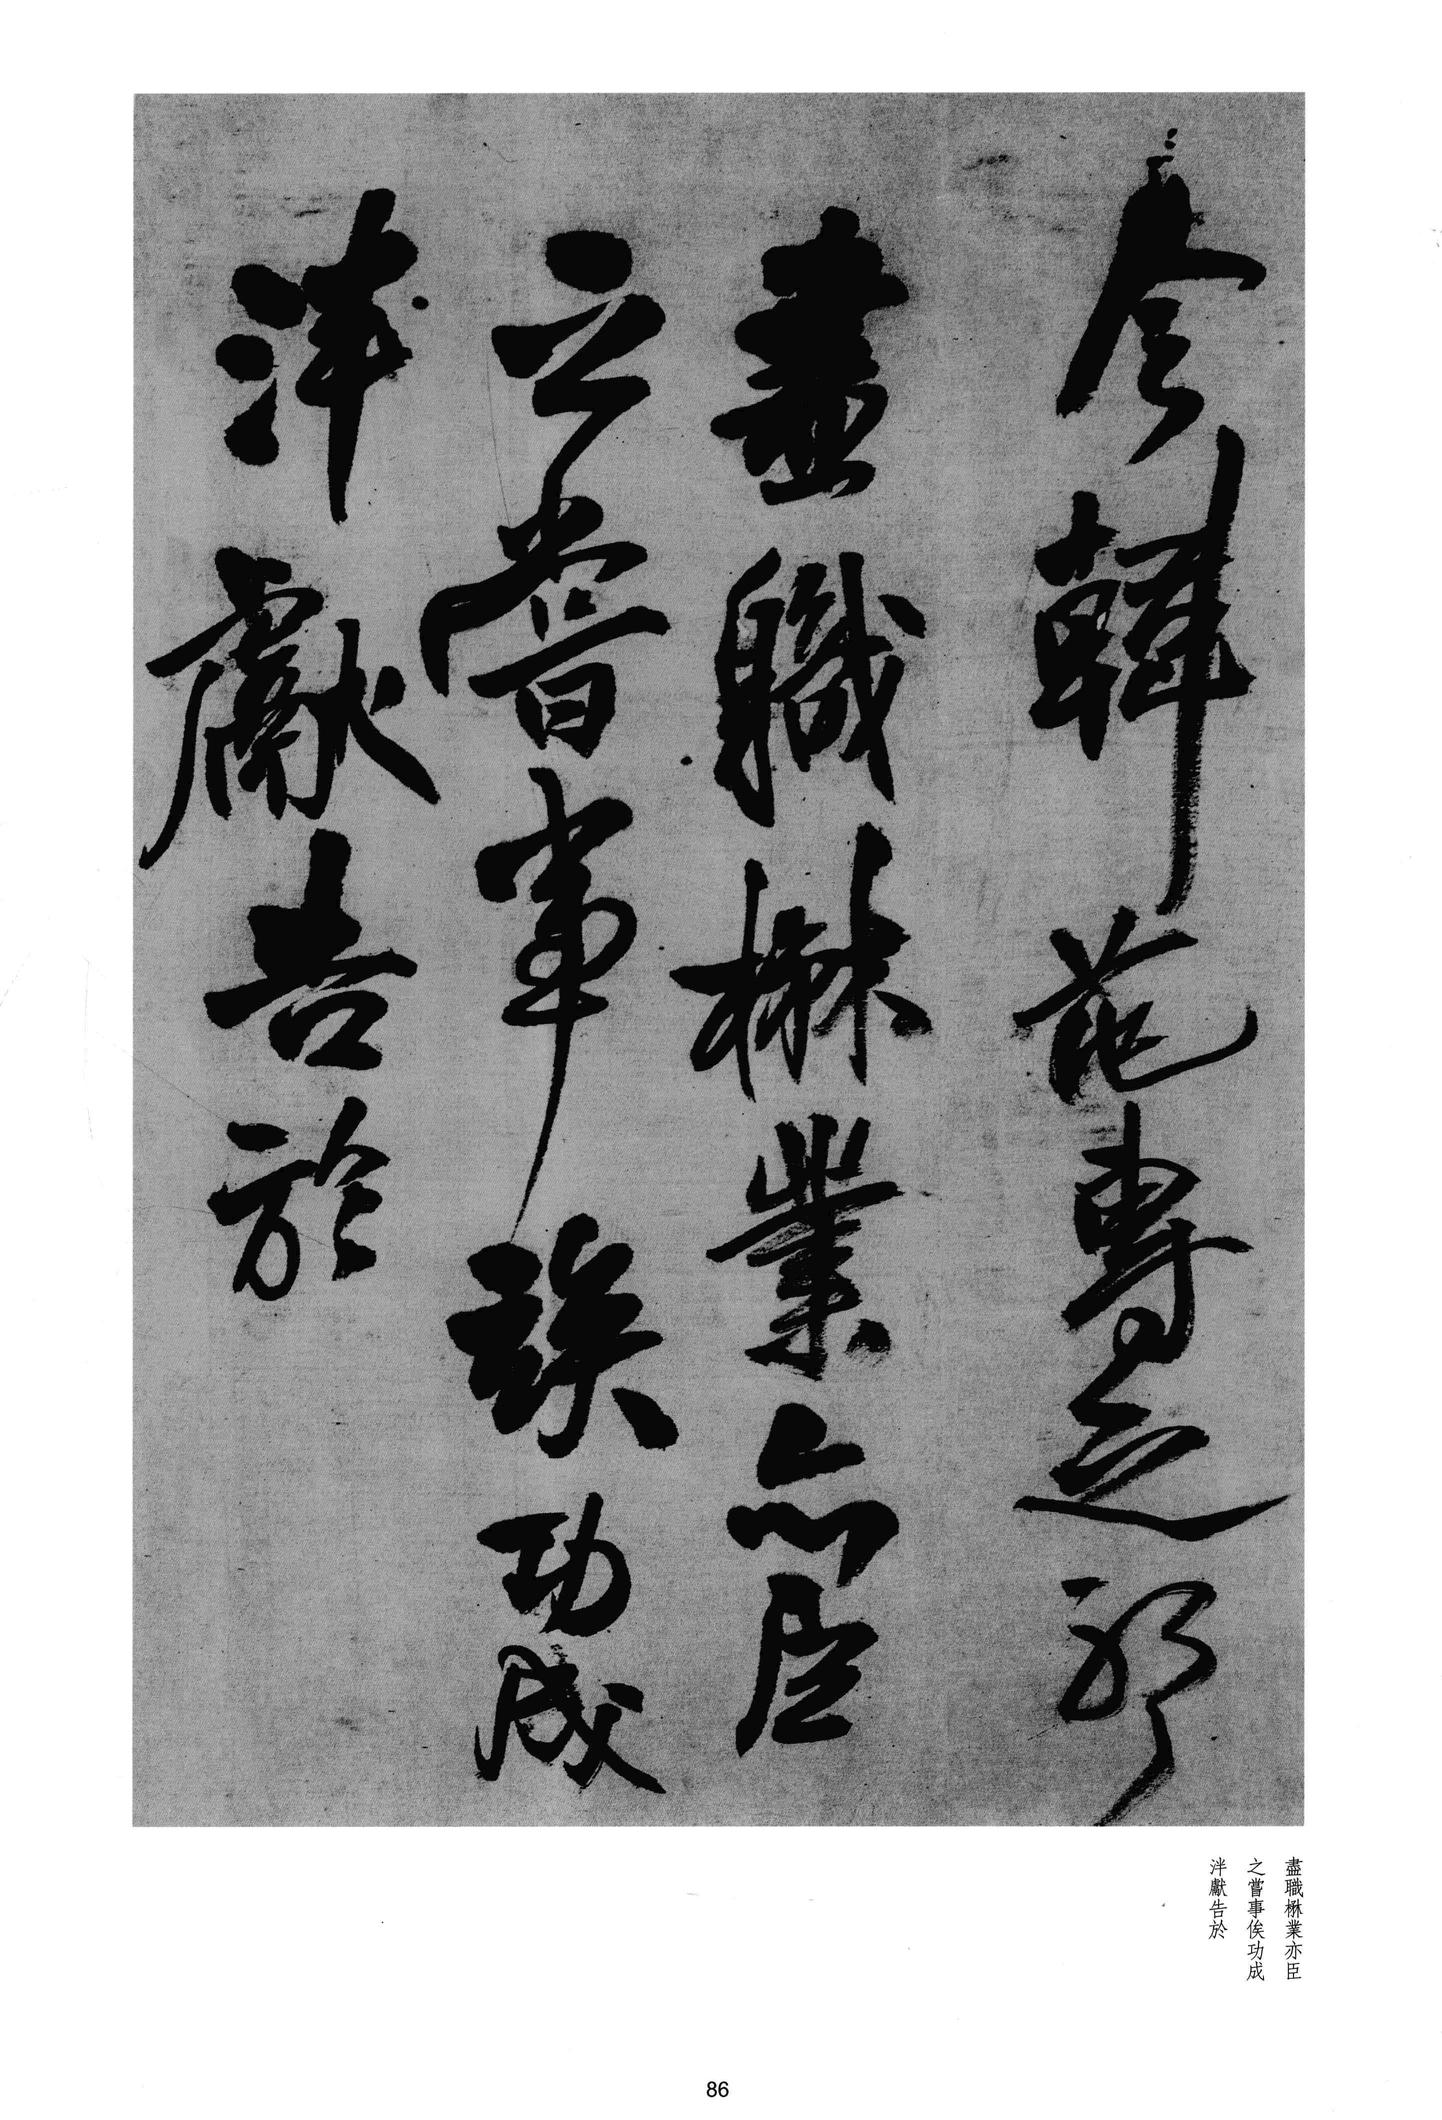 今韓范專之邪
盡職楙業亦臣
之嘗事俟功成
泮獻告於
盡職楙業亦臣
之嘗事俟功成
泮獻告於
86